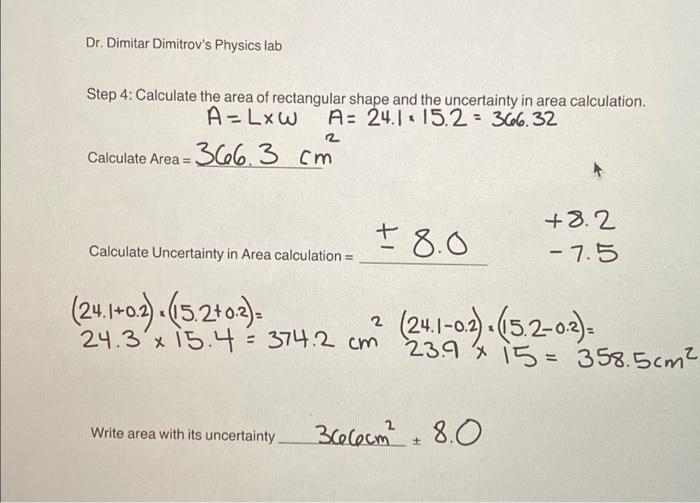 Dr. Dimitar Dimitrov's Physics lab
Step 4: Calculate the area of rectangular shape and the uncertainty in area calculation.
A = L x W A = 24.1 * 15.2 = 366.32
Calculate Area = 366.3 cm²
+8.2
Calculate Uncertainty in Area calculation = ± 8.0 -7.5
(24.1+0.2)*(15.2+0.2)= (24.1-0.2)*(15.2-0.2)=
24.3 x 15.4 = 374.2 cm² 23.9 x 15 = 358.5cm²
Write area with its uncertainty 366cm² ± 8.0